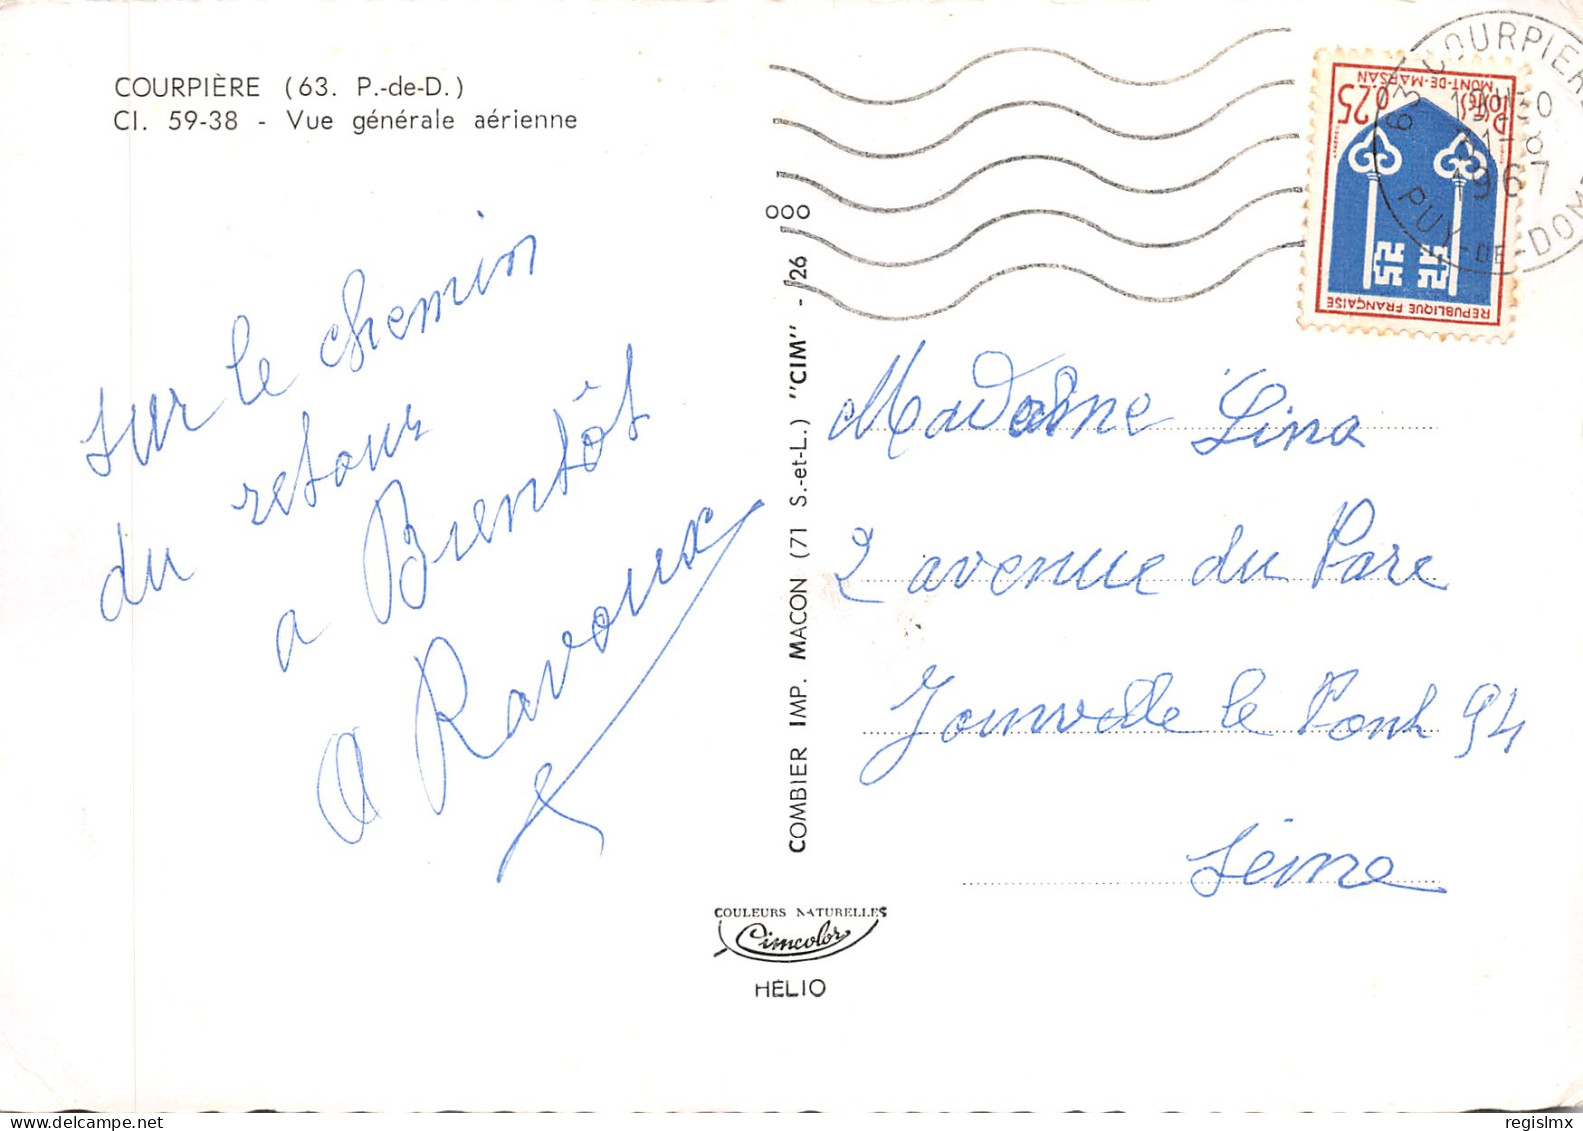 COURPIÈRE (63. P.-de-D.)
Cl. 59-38 - Vue générale aérienne
sur le chemin
du retour
a Brentôt
A Ravoux
COMBIER IMP. MACON (71 S.-et-L.) "CIM" - 126 000
COULEURS NATURELLES
Cimcolor
HELIO
0.25
POSTES
MONT-DE-MARSAN
REPUBLIQUE FRANÇAISE
63 COURPIERE
1967
PUY-DE-DOME
Madame Lina
2 avenue du Parc
Joinville le Pont 94
Seine
www.delcampe.net
regislmx